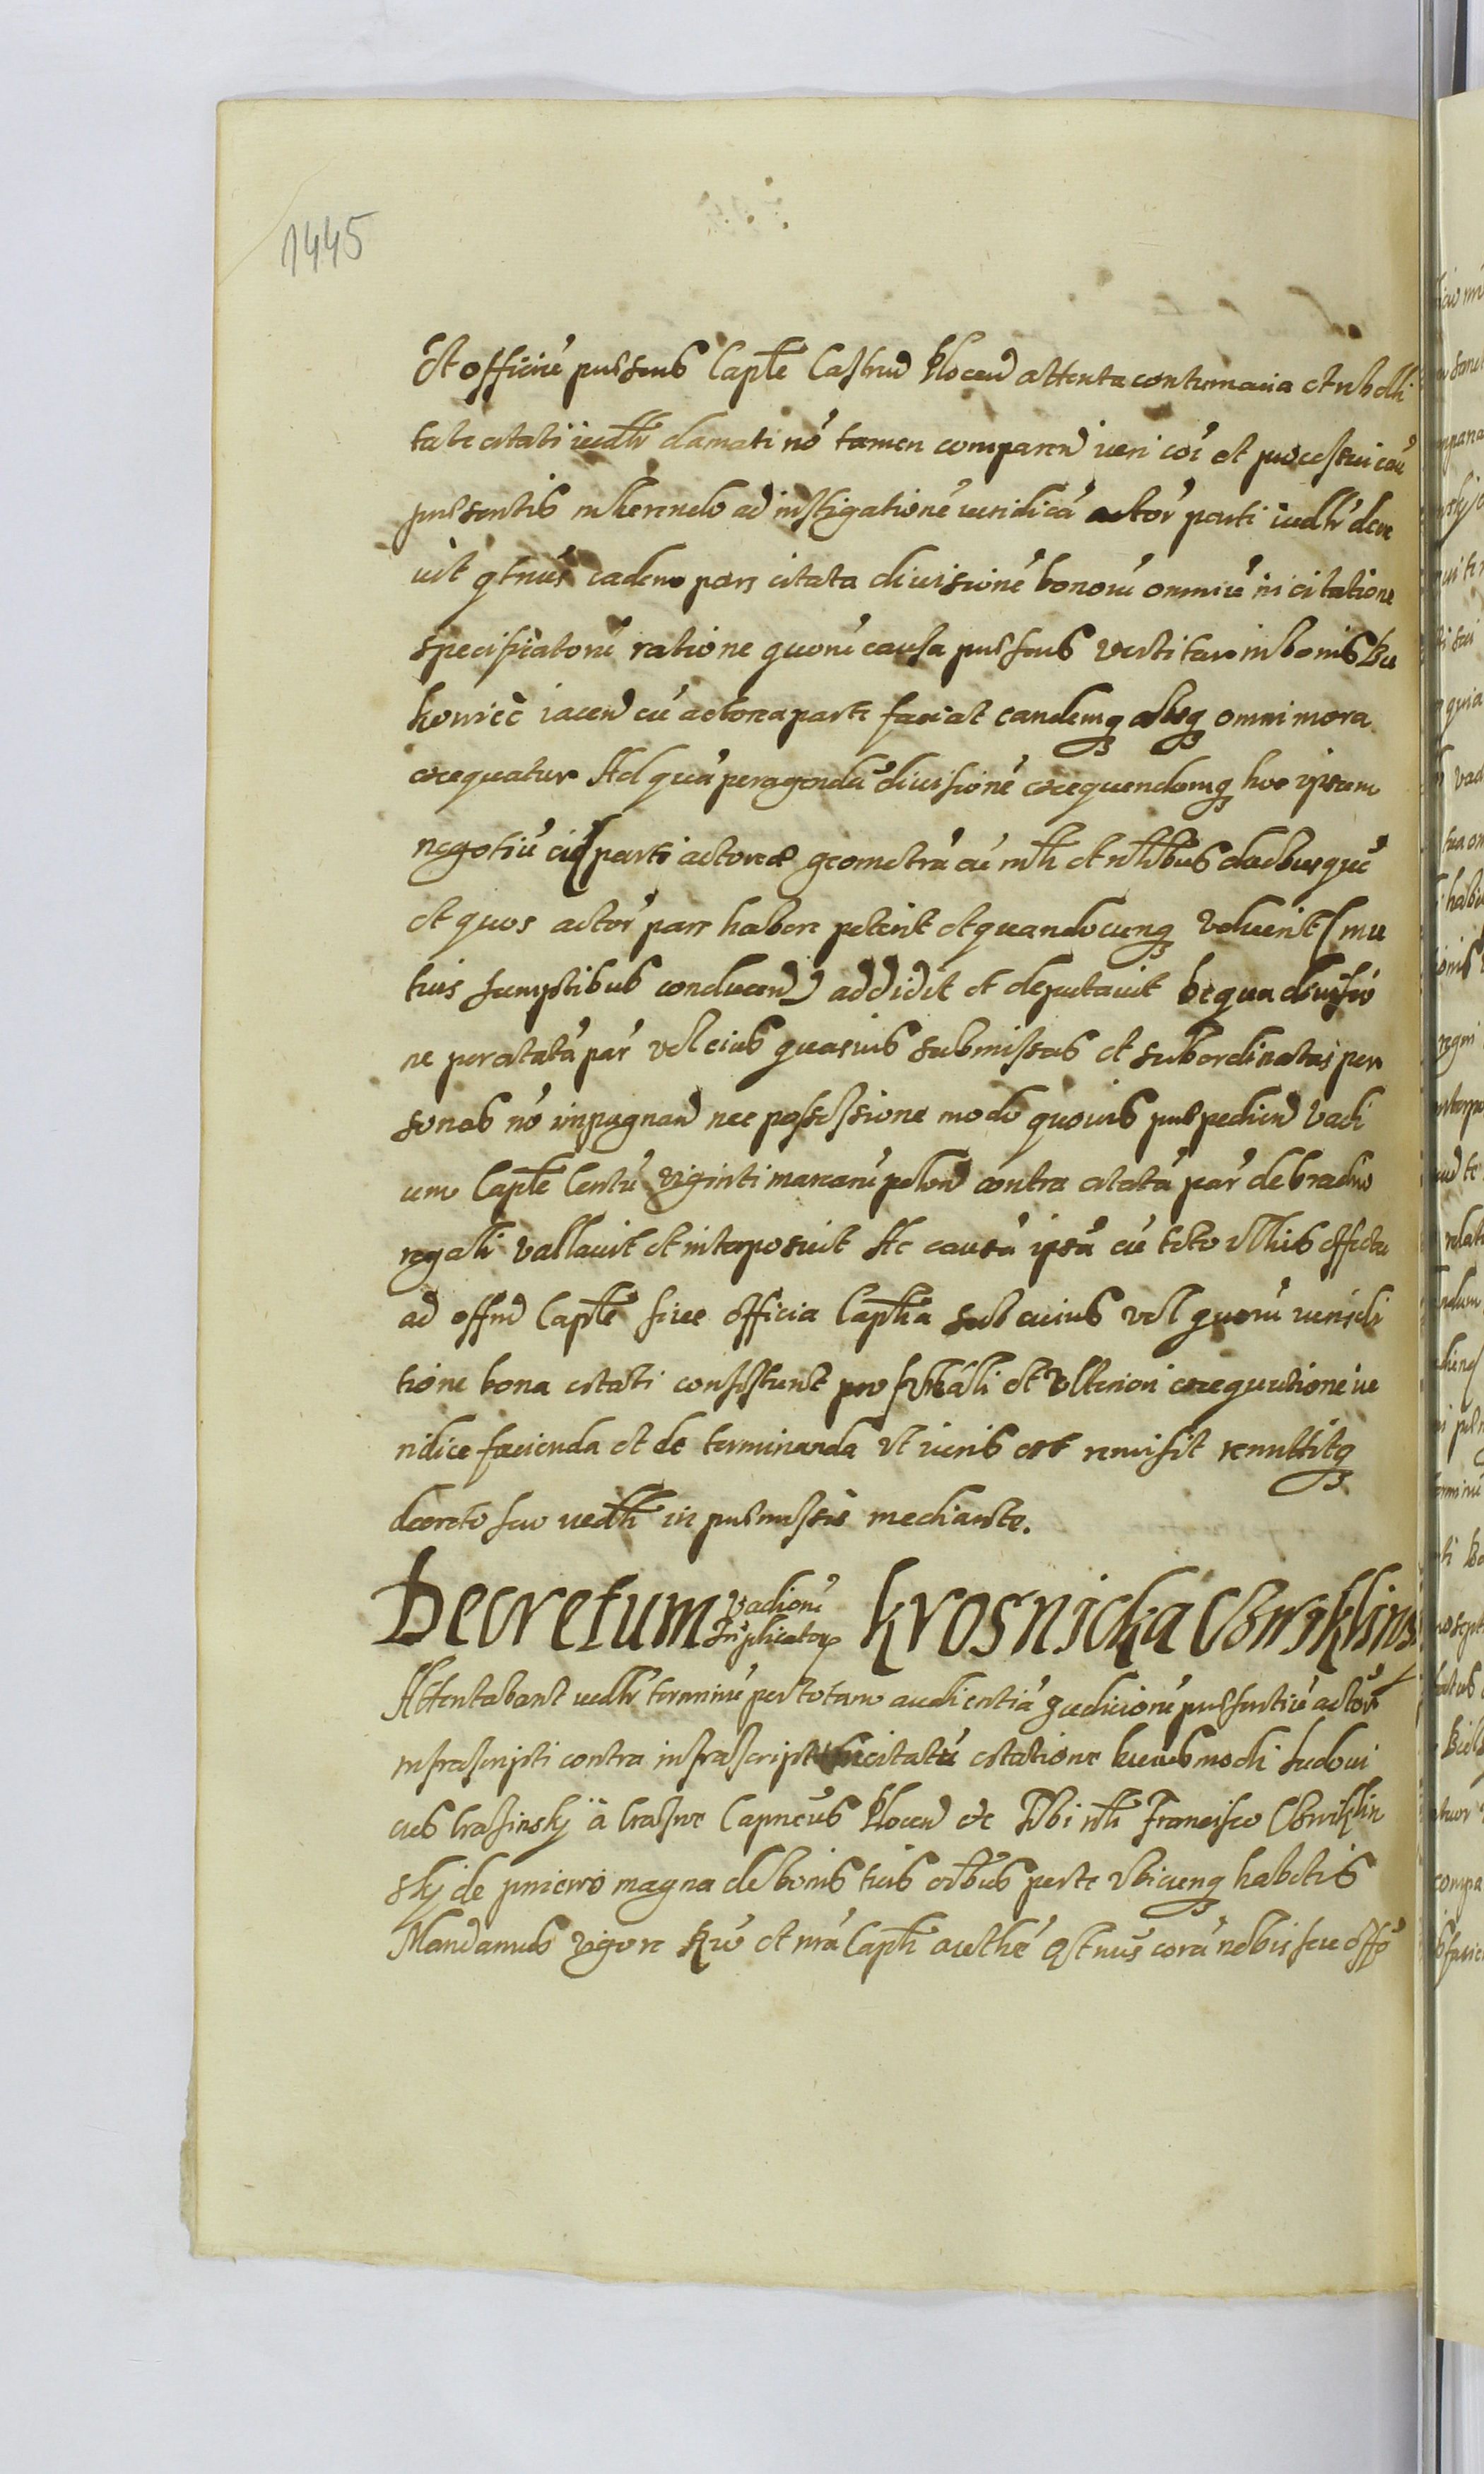 1445
Et officiu pńsens Capłe Castren Plocen attenta contumacia et rebelli
tate citati iudlr clamati nō tamen comparen iuri cōi et processui cau
pńsentis inherendo ad instigationē iuridicā actor parti iudlr decre
uit qtnus eadem pars citata diuisionē bonorū omniū in citatione
specificatorū ratione quorū causa pńsens vertitur in bonis Bu
kowiec iacen cū actorea parte faciat eandemq absq omni mora
exequatur Ad quā peragendā diuisionē exequendamq hoc ipsum
negotiū parti actoreæ geometrā cū mtli et nlibus duobus quē
et quos actor pars habere petierit et quandocunq voluerit (mu
tuis sumptibus conducen) addidit et deputauit De qua diuisio
ne per citatā par vel eius quasuis submissas et subordinatas per
sonas nō impugnan nec possessione modo quouis pńpedien vadi
um Capłe Centū viginti marcarū polon contra citatā par de bracho
regali vallauit et interposuit Ac causā ipsā cū toto illius effectu
ad offm Capłe siue officia Caplia sub cuius vel quorū iurisdi
tione bona citati consistunt pro et vlteriori exequutione iu
ridice facienda et de terminanda vt iuris est remisit remittitq
decreto suo iudłi in pńmissis mediante.
Decretum vadiorū triplicator Krosnicka Cwiklins
Attentabant iudlr terminū per totam audientiā iudiciorū pńsentiū actor
infrascripti contra infrascriptū citatū citatione huiusmodi Ludoui
cus Crasinsky à Crasne Capneus Plocen etc Tibi nli Francisco Cwiklin
sky de pniewo magna de bonis tuis oibus perte vbicunq habitis
Mandamus vigore et nrā Capli authē qtnus corā nobis seu offo